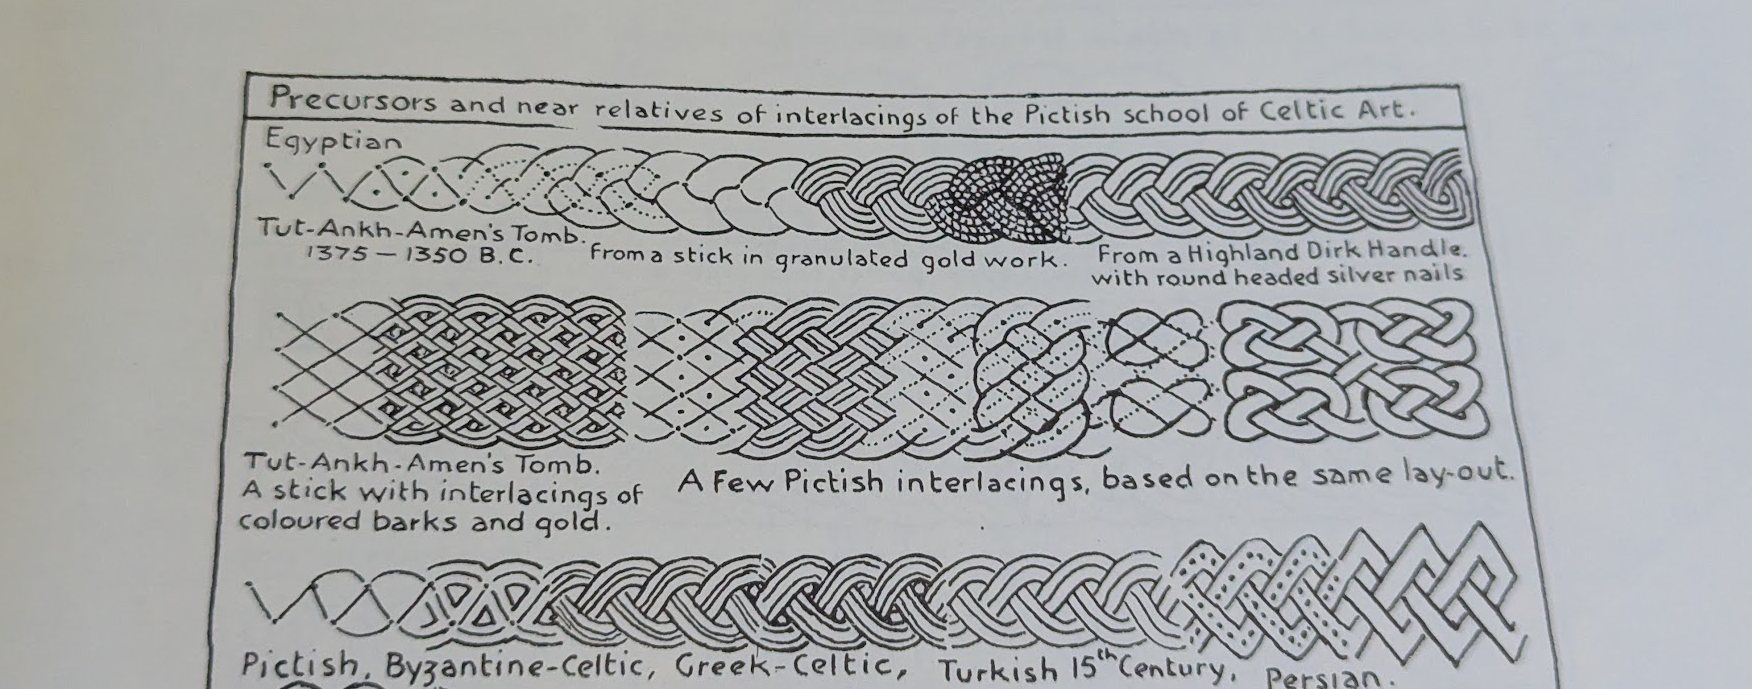 Precursors and near relatives of interlacings of the Pictish school of Celtic Art.
Egyptian
Tut-Ankh-Amen's Tomb.
1375 – 1350 B.C.
From a stick in granulated gold work.
From a Highland Dirk Handle.
with round headed silver nails
Tut-Ankh-Amen's Tomb.
A stick with interlacings of
coloured barks and gold.
A Few Pictish interlacings, based on the same lay-out.
Pictish, Byzantine-Celtic, Greek-Celtic, Turkish 15th Century, Persian.